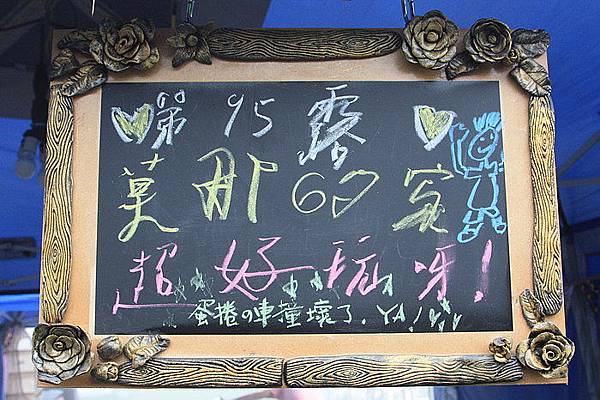 第 95 露
莫那 60 家
超好玩呀!
蛋捲の車撞壞了. YA!